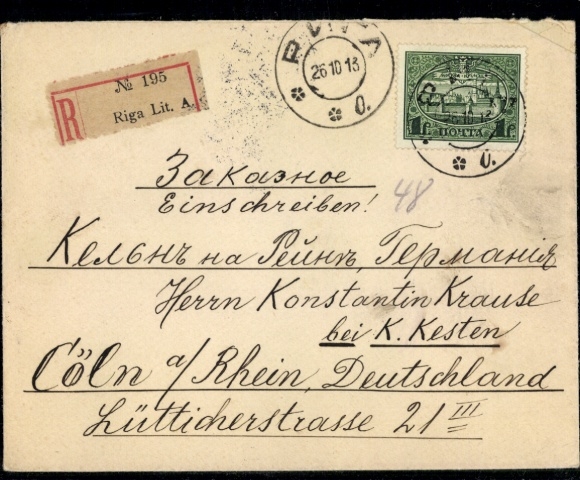 № 195
R Riga Lit. A.
РИГА
26 10 13
0.
1р ПОЧТА 1р
0.
Заказное
Einschreiben!
48
Кельнъ на Рейнѣ, Германія
Herrn Konstantin Krause
bei K. Kesten
Cöln a/Rhein, Deutschland
Lütticherstrasse 21 III